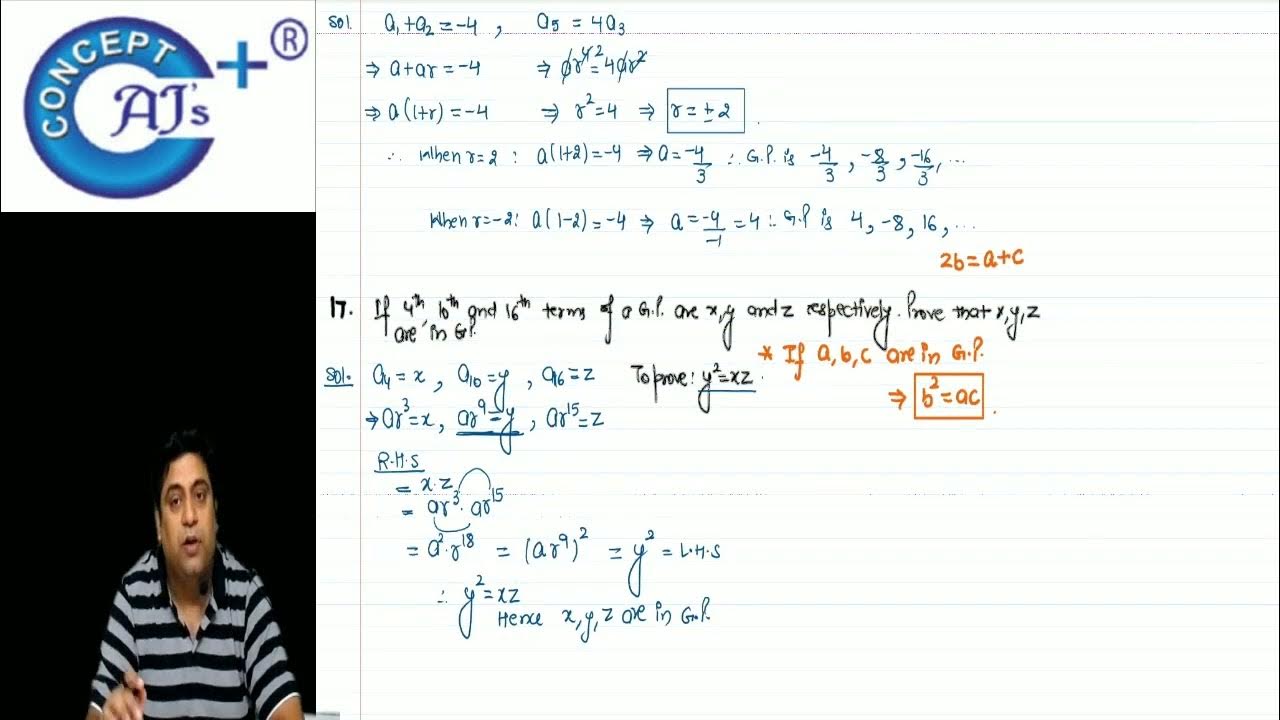 CONCEPT
AJ's
+®
Sol. a₁+a₂=-4 , a₅ = 4a₃
⇒ a+ar=-4 ⇒ ar⁴²=4ar²
⇒ a(1+r)=-4 ⇒ r²=4 ⇒ r=±2 .
∴ When r=2 : a(1+2)=-4 ⇒ a=-4/3 ∴ G.P. is -4/3 , -8/3 , -16/3, ...
When r=-2: a(1-2)=-4 ⇒ a=-4/-1 =4 ∴ G.P is 4, -8, 16, ...
2b=a+c
17. If 4th, 10th and 16th terms of a G.P. are x,y and z respectively. Prove that x,y,z
are in G.P.
* If a,b,c are in G.P.
Sol. a₄=x , a₁₀=y , a₁₆=z To prove: y²=xz .
⇒ b²=ac .
⇒ ar³=x, ar⁹=y , ar¹⁵=z
R.H.S
= x.z
= ar³. ar¹⁵
= a².r¹⁸ = (ar⁹)² = y² = L.H.S
∴ y²=xz
Hence x,y,z are in G.P.